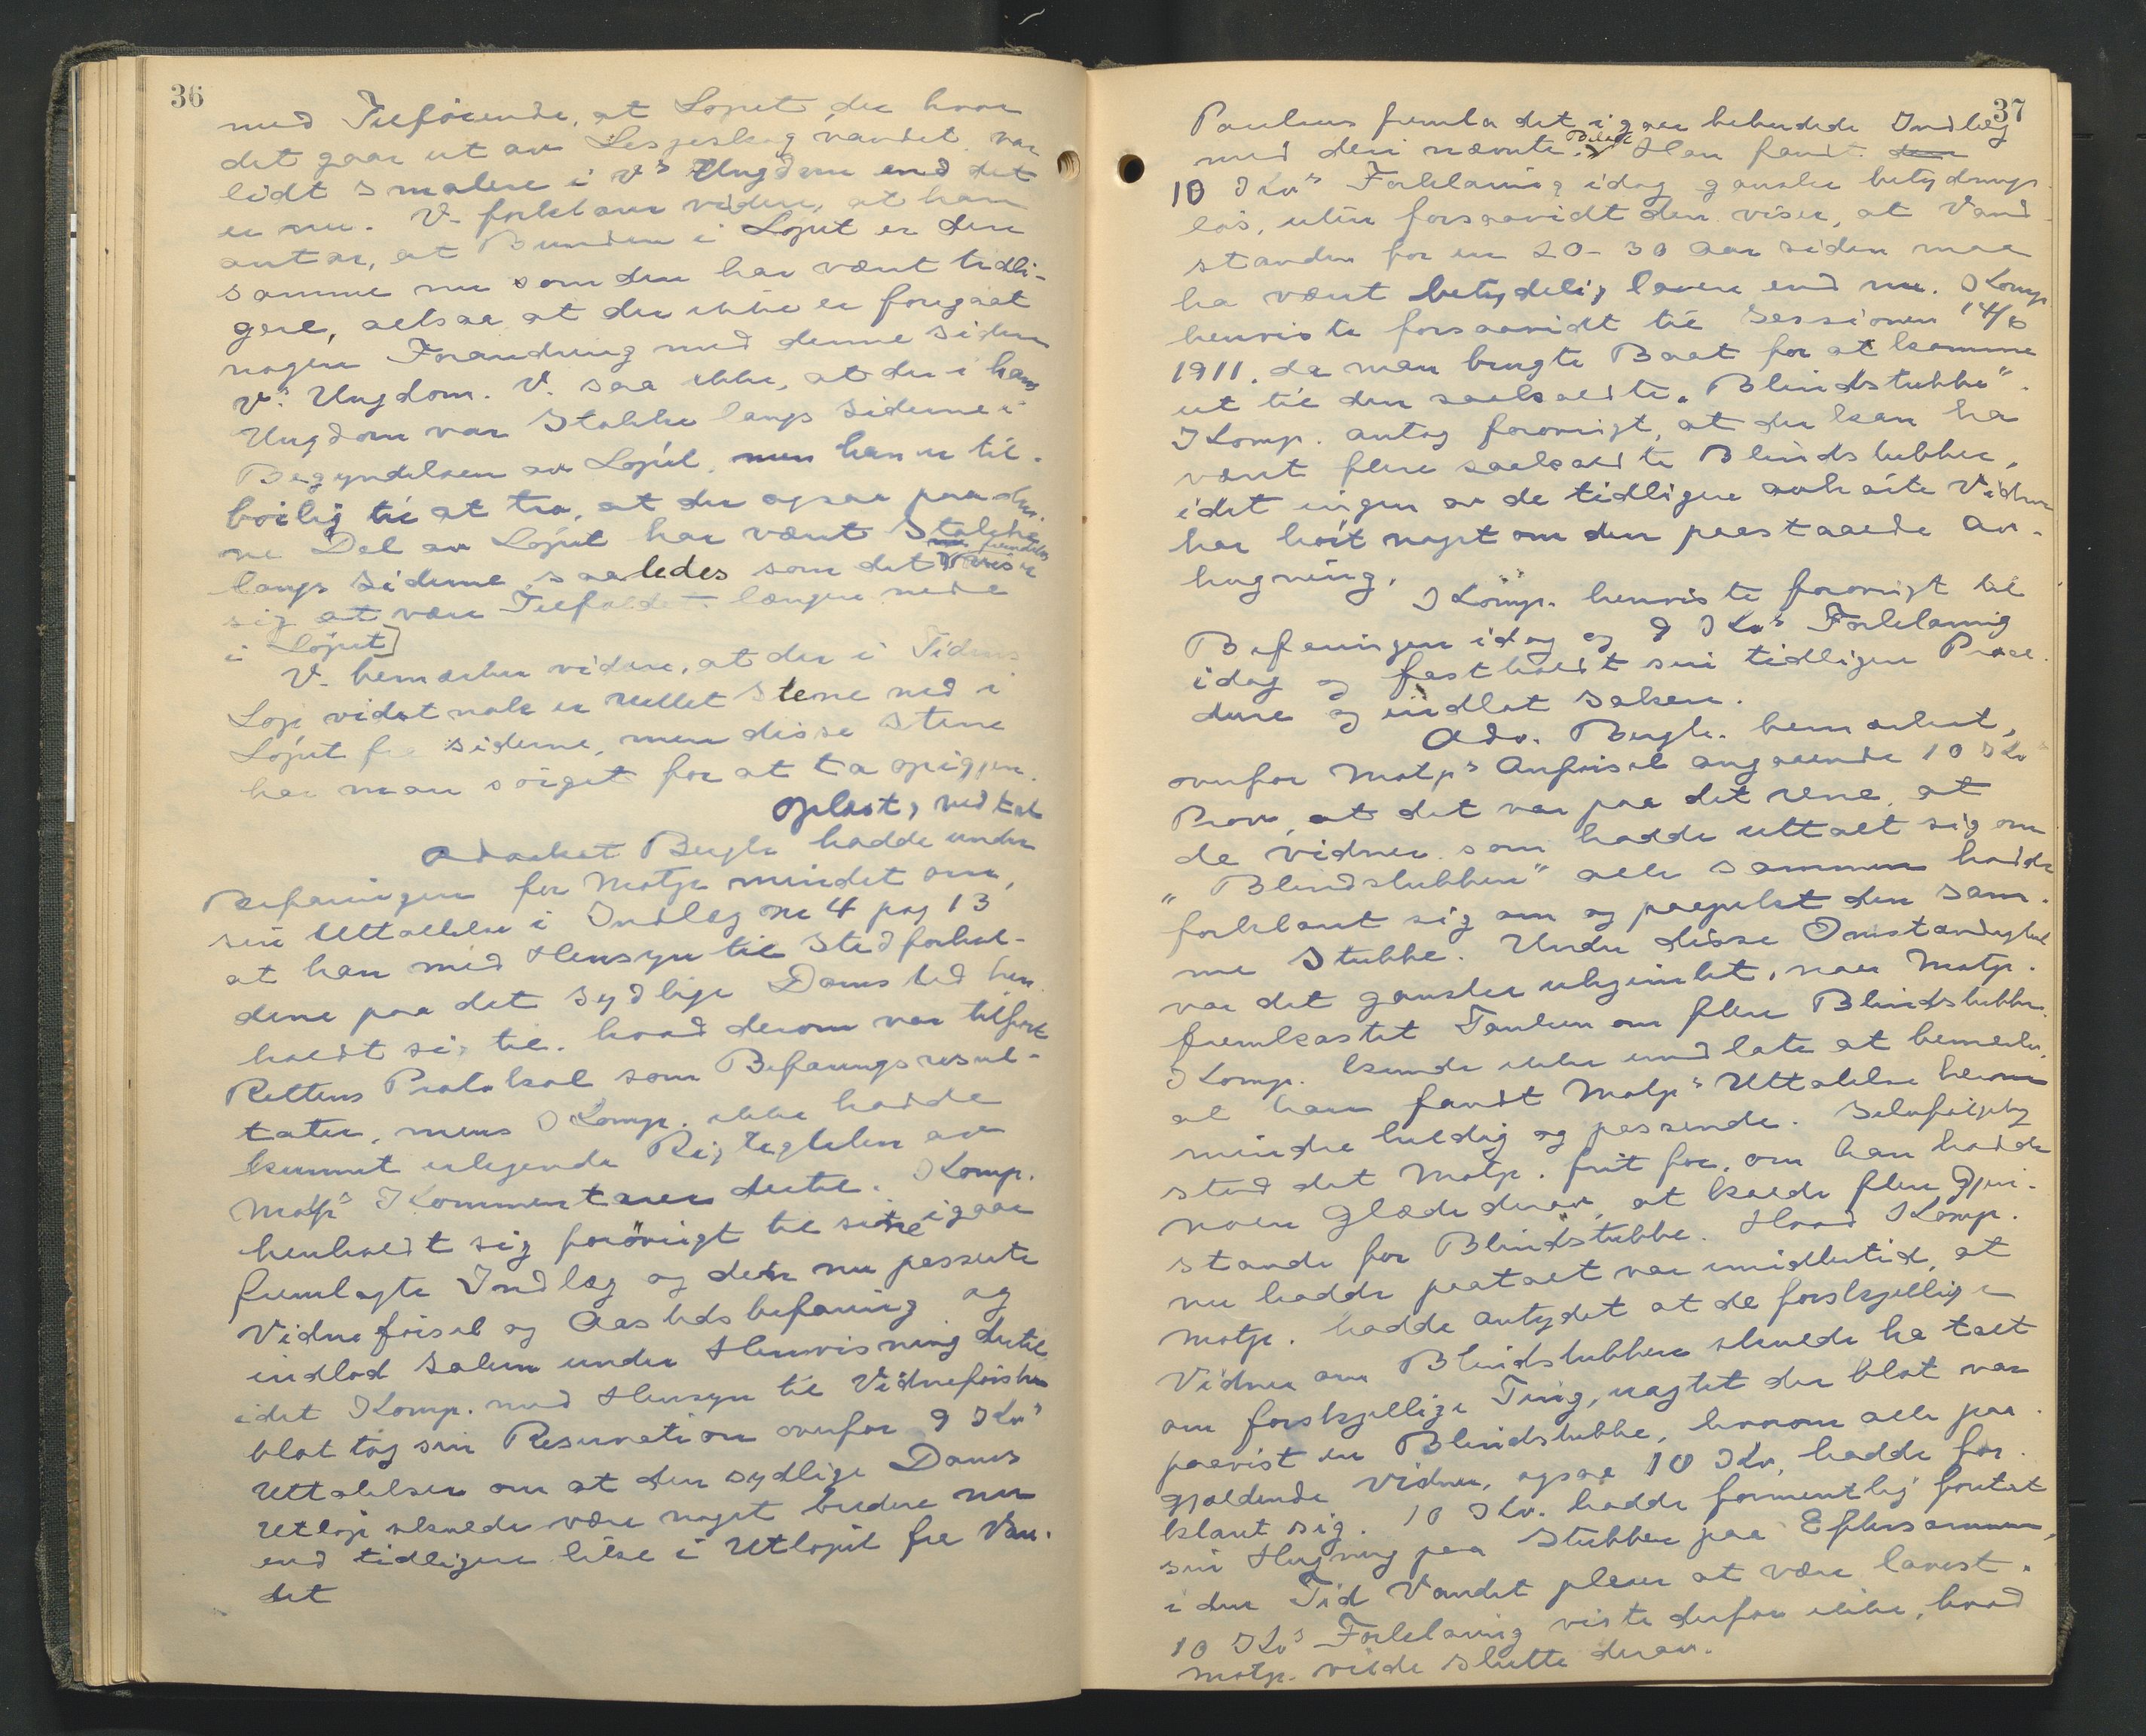 36
med Tilföiende, at Löpet der hvor
det gaar ut av Lesjeskogvandet var
lidt smalere i V's Ungdom end det
er nu. V. forklarer videre, at han
antar, at Bunden i Löpet er den
samme nu som den har været tidli-
gere, altsaa at der ikke er foregaat
nogen Forandring med denne siden
V's Ungdom. V. saa ikke, at der i hans
Ungdom var Stokke langs Siderne i
Begyndelsen av Löpet, men han er til-
böielig til at tro, at der ogsaa paa den-
ne Del av Löpet har været Stokke
langs Siderne saaledes som det fremdeles viser
sig at være Tilfældet længere nede
i Löpet]
V. bemærker videre, at der i Tidens
Löp vidst nok er rullet Stene ned i
Löpet fra Siderne, men disse Stene
har man sörget for at ta op igjen.
Oplæst, vedtat
Advokat Bergh hadde under
Befaringen for Motp. mindet om,
sin Uttalelse i Indlæg nr 4 pag 13
at han med Hensyn til Stedforhol-
dene paa det sydlige Damsted hen
holdt sig til hvad derom var tilfört
Rettens Protokol som Befaringsresul-
tater, mens I Komp. ikke hadde
kunnet erkjende Rigtigheten av
Motp's Kommentarer dertil. I Komp.
henholdt sig forövrigt til sine igaar
fremlagte Indlæg og den nu passerte
Vidneförsel og Aastedsbefaring og
indlod Saken under Henvisning dertil
idet I Komp. med Hensyn til Vidneförslen
blot tog sin Reservation overfor 9 I Kv's
Uttalelser om at den sydlige Dams
Utlöp skulde være noget bredere nu
end tidligere like i Utlöpet fra Van-
det
37
Paulsen fremla det igaar bebudede Indlæg
med deri nævnte Bilag. Han fandt den
10 I Kv's Forklaring idag ganske betydnings-
lös, uten forsaavidt den viser, at Vand-
standen for en 20-30 Aar siden maa
ha været betydelig lavere end nu. I Komp
henviste forsaavidt til Sessionen 14/6
1911, da man brugte Baat for at komme
ut til den saakaldte "Blindstubbe".
I Komp. antog forövrigt, at der kan ha
været flere saakaldte Blindstubber,
idet ingen av de tidligere avhörte Vidner
har hört noget om den paastaaede Av-
hugning.
I Komp. henviste forövrigt til
Befaringen idag og 9 I Kv's Forklaring
idag og fastholdt sin tidligere Proce-
dure og indlot Saken.
Adv. Bergh. bemærket,
overfor Motp's Anförsel angaaende 10 I Kv's
Prov, at det var paa det rene, at
de Vidner som hadde uttalt sig om
"Blindstubben" alle sammen hadde
forklaret sig om og paapekt den sam-
me Stubbe. Under disse Omstændighet
var det ganske ubegrundet, naar Motp.
fremkastet Tanken om flere Blindstubber.
I Komp. kunde ikke undlate at bemerke,
at han fandt Motp's Uttalelse herom
mindre heldig og passende. Selvfölgelig
stod det Motp. frit for, om han hadde
noen Glæde derav, at kalde flere Gjen-
stande for Blindstubbe. Hvad I Komp.
nu hadde paatalt var imidlertid, at
Motp. hadde antydet at de forskjellige
Vidner om Blindstubben skulde ha talt
om forskjellige Ting, uagtet der blot var
paavist en Blindstubbe, hvorom alle paa-
gjældende Vidner, ogsaa 10 I Kv, hadde for-
klaret sig. 10 I Kv. hadde formentlig foretat
sin Hugning paa Stubben paa Eftersommeren,
i den Tid Vandet pleier at være lavest.
10 I Kv's Forklaring viste derfor ikke, hvad
Motp. vilde slutte derav.